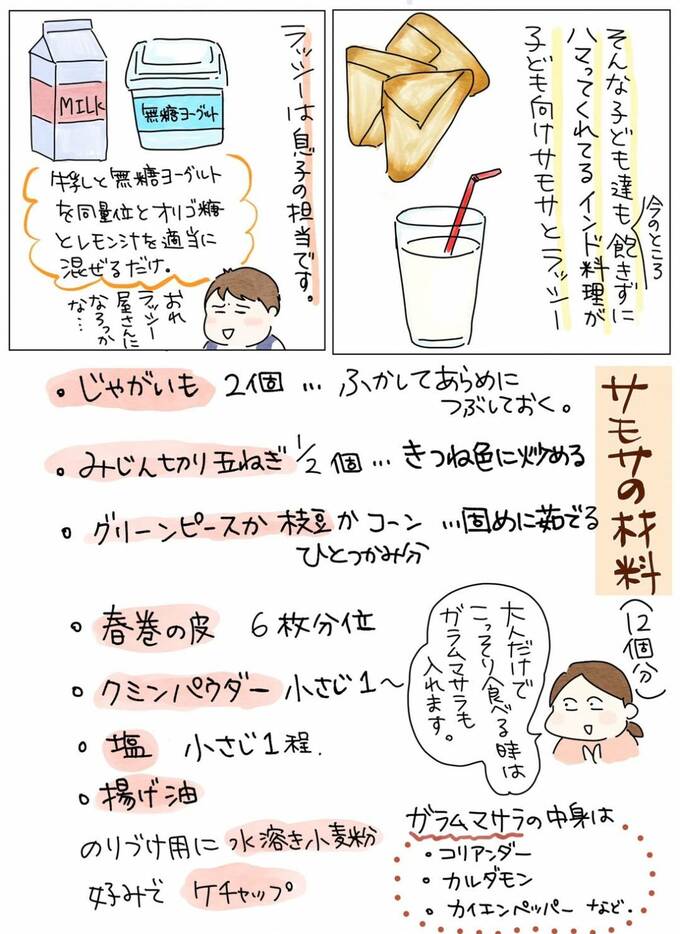 そんな子ども達も飽きずに
今のところ
ハマってくれてるインド料理が
子ども向けサモサとラッシー
ラッシーは息子の担当です。
MILK
無糖ヨーグルト
牛乳と無糖ヨーグルト
を同量位とオリゴ糖
とレモン汁を適当に
混ぜるだけ。
おれ
ラッシー
屋さんに
なろっか
な…
サモサの材料
(12個分)
・じゃがいも 2個 … ふかしてあらめに
つぶしておく。
・みじん切り玉ねぎ 1/2個 … きつね色に炒める
・グリーンピースか枝豆かコーン …固めに茹でる
ひとつかみ分
・春巻の皮 6枚分位
・クミンパウダー 小さじ1〜
・塩 小さじ1程.
・揚げ油
のりづけ用に 水溶き小麦粉
好みで ケチャップ
大人だけで
こっそり食べる時は
ガラムマサラも
入れます。
ガラムマサラの中身は
・コリアンダー
・カルダモン
・カイエンペッパー など.